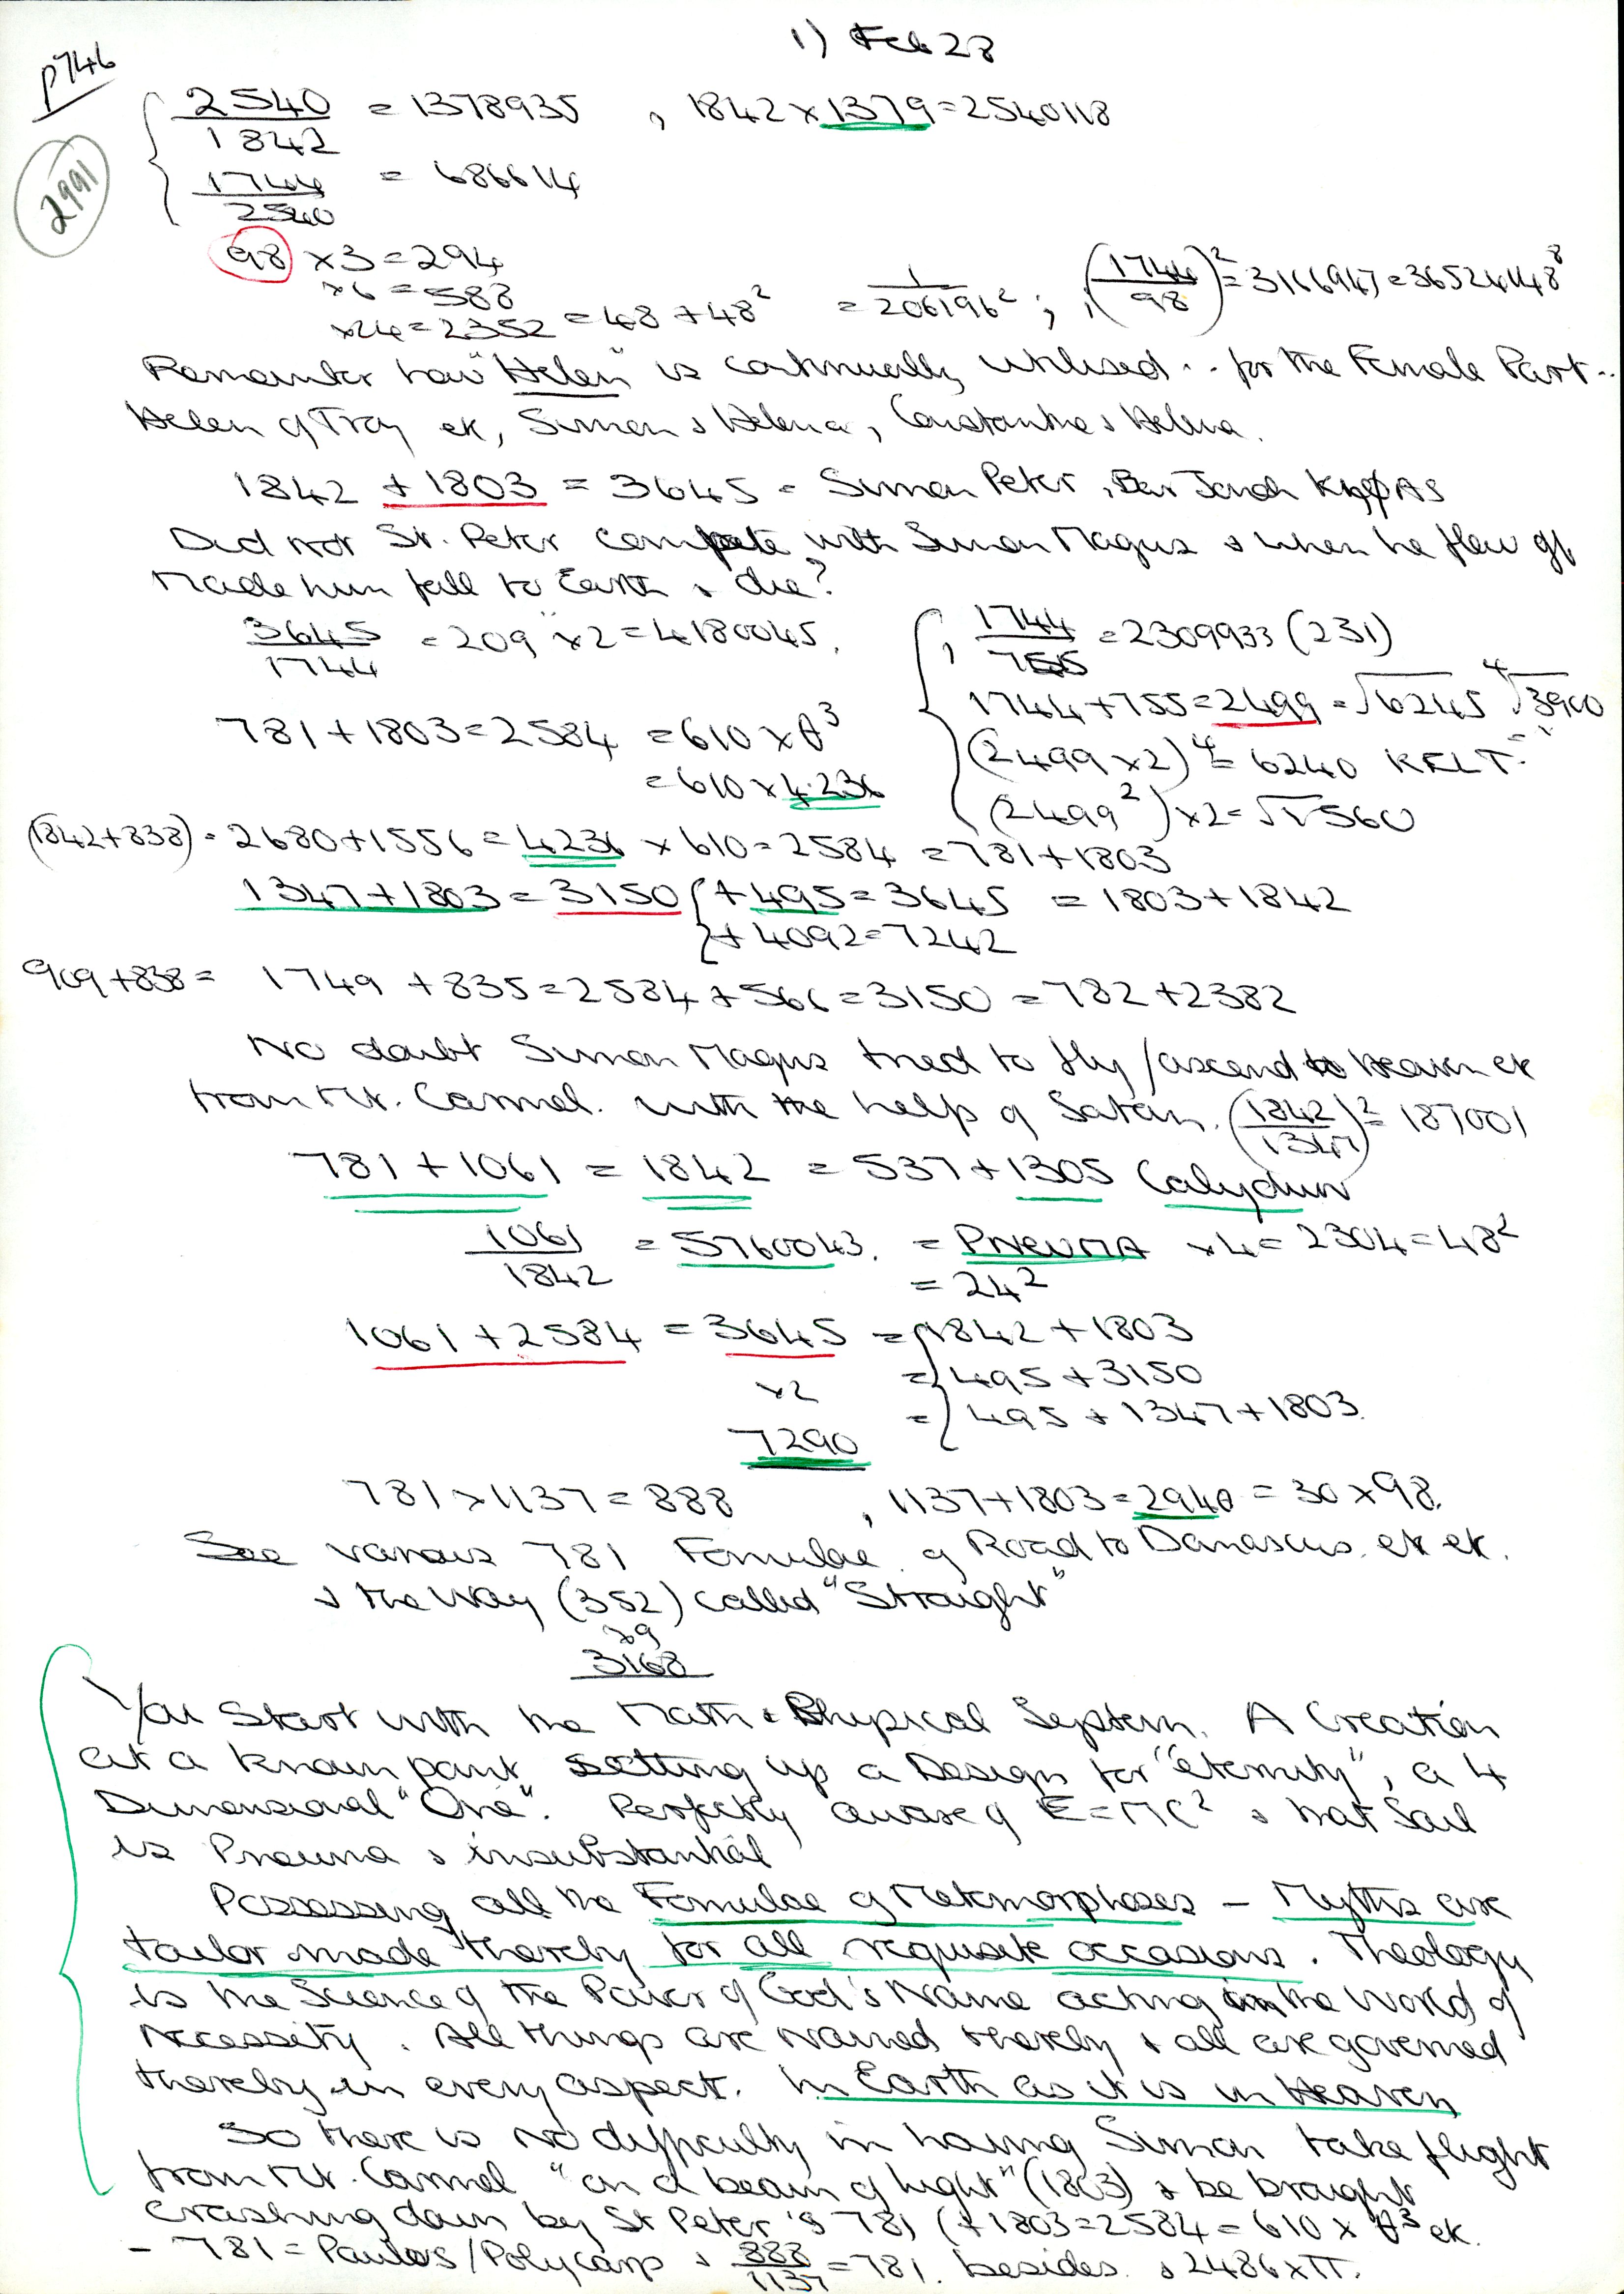 1) Feb 28
p746
2991
2540/1842 = 1378935 , 1842 x 1379 = 2540118
1744/2540 = 686614
98 x 3 = 294
x 6 = 588
x 24 = 2352 = 48 + 48² = 1/206196² ; , (1744/98)² = 3166947 = 36524148⁸
Remember how "Helen" is continually utilised .. for the Female Part ..
Helen of Troy etc, Simon & Helena, Constantine & Helena.
1842 + 1803 = 3645 = Simon Peter, Bar Jonah KHφAS
Did not St. Peter compete with Simon Magus & when he flew off
made him fall to Earth & die?
3645/1744 = 209 x 2 = 4180045.
, 1744/755 = 2309933 (231)
1744 + 755 = 2499 = √6245 ⁴√3900
781 + 1803 = 2584 = 610 x θ³
(2499 x 2)⁴ = 6240 KELT.
= 610 x 4.236
(2499²) x 2 = √√560
(1842 + 838) = 2680 + 1556 = 4236 x 610 = 2584 = 781 + 1803
1347 + 1803 = 3150 { + 495 = 3645 = 1803 + 1842
+ 4092 = 7242
909 + 838 = 1749 + 835 = 2584 + 566 = 3150 = 782 + 2382
No doubt Simon Magus tried to fly / ascend to Heaven etc
from Mt. Carmel. with the help of Satan. (1842/1347)² = 187001
781 + 1061 = 1842 = 537 + 1305 Calydwn
1061/1842 = 5760043. = PNEUMA x 4 = 2304 = 48²
= 24²
1061 + 2584 = 3645 = 1842 + 1803
x 2 = 495 + 3150
= 495 + 1347 + 1803.
7290
781 x 1137 = 888 , 1137 + 1803 = 2940 = 30 x 98.
See various 781 Formulae of Road to Damascus. etc etc.
& the Way (352) called "Straight"
x9
3168
You start with the Math & Physical System. A Creation
at a known point setting up a Design for "eternity", a 4
Dimensional "One". Perfectly aware of E = MC² & that Soul
is Pneuma & insubstantial
Possessing all the Formulae of Metamorphoses – Myths are
tailor made thereby for all requisite occasions. Theology
is the Science of the Power of God's Name acting in the World of
Necessity. All things are named thereby & all are governed
thereby in every aspect. In Earth as it is in Heaven
So there is no difficulty in having Simon take flight
from Mt. Carmel "on a beam of light" (1803) & be brought
crashing down by St Peter's 781 (+ 1803 = 2584 = 610 x θ³ etc.
– 781 = Paulos / Polycarp & 888/1137 = 781. besides. & 2486 x π.